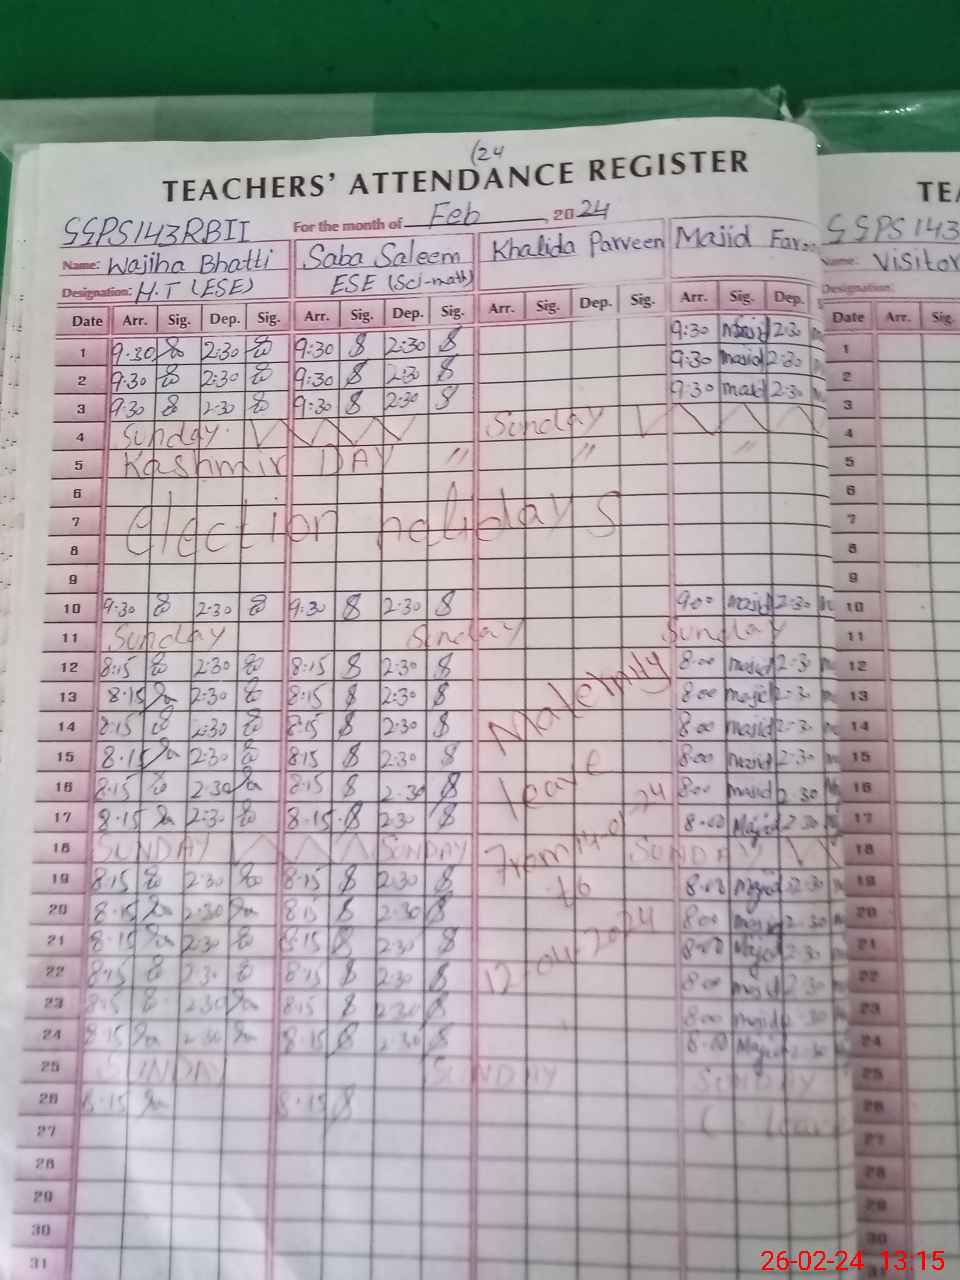 (24
TEACHERS' ATTENDANCE REGISTER
TEA
GGPS 143RBII For the month of Feb, 2024
GGPS 143
Name: Wajiha Bhatti Saba Saleem Khalida Parveen Majid
Name: Visitor
Designation: H.T (ESE) ESE (Sci-math)
Designation:
Date Arr. Sig. Dep. Sig. Arr. Sig. Dep. Sig. Arr. Sig. Dep. Sig. Arr. Sig. Dep. Date Arr. Sig.
1 9:30 2:30 9:30 2:30 9:30 Majid 2:30 1
2 9:30 2:30 9:30 2:30 9:30 majid 2:30 2
3 9:30 2:30 9:30 2:30 9:30 majid 2:30 3
4 Sunday Sunday 4
5 Kashmir DAY " " " 5
6 6
7 election holidays 7
8 8
9 9
10 9:30 2:30 9:30 2:30 9:00 majid 2:30 10
11 Sunday Sunday Sunday 11
12 8:15 2:30 8:15 2:30 8:00 majid 2:30 12
13 8:15 2:30 8:15 2:30 8:00 majid 2:30 13
14 8:15 2:30 8:15 2:30 Maternity 8:00 majid 2:30 14
15 8:15 2:30 8:15 2:30 leave 8:00 majid 2:30 15
16 8:15 2:30 8:15 2:30 8:00 majid 2:30 16
17 8:15 2:30 8:15 2:30 8:00 Majid 2:30 17
18 SUNDAY SUNDAY From 14-01-24 SUNDAY 18
19 8:15 2:30 8:15 2:30 to 8:00 Majid 2:30 19
20 8:15 2:30 8:15 2:30 8:00 majid 2:30 20
21 8:15 2:30 8:15 2:30 8:00 Majid 2:30 21
22 8:15 2:30 8:15 2:30 12-04-2024 8:00 majid 2:30 22
23 8:15 2:30 8:15 2:30 8:00 majid 2:30 23
24 8:15 2:30 8:15 2:30 8:00 Majid 2:30 24
25 SUNDAY SUNDAY SUNDAY 25
26 8:15 8:15 leave 26
27 27
28 28
29 29
30 30
31 31
26-02-24 13:15